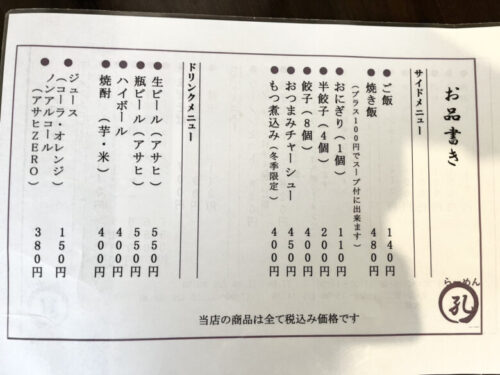 お品書き
サイドメニュー
●ご飯 140円
●焼き飯 480円
(プラス100円でスープ付に出来ます)
●おにぎり(1個) 110円
●半餃子(4個) 200円
●餃子(8個) 400円
●おつまみチャーシュー 450円
●もつ煮込み(冬季限定) 400円
ドリンクメニュー
●生ビール(アサヒ) 550円
●瓶ビール(アサヒ) 550円
●ハイボール 400円
●焼酎(芋・米) 400円
●ジュース
(コーラ・オレンジ) 150円
ノンアルコール
(アサヒZERO) 380円
らーめん
孔
当店の商品は全て税込み価格です